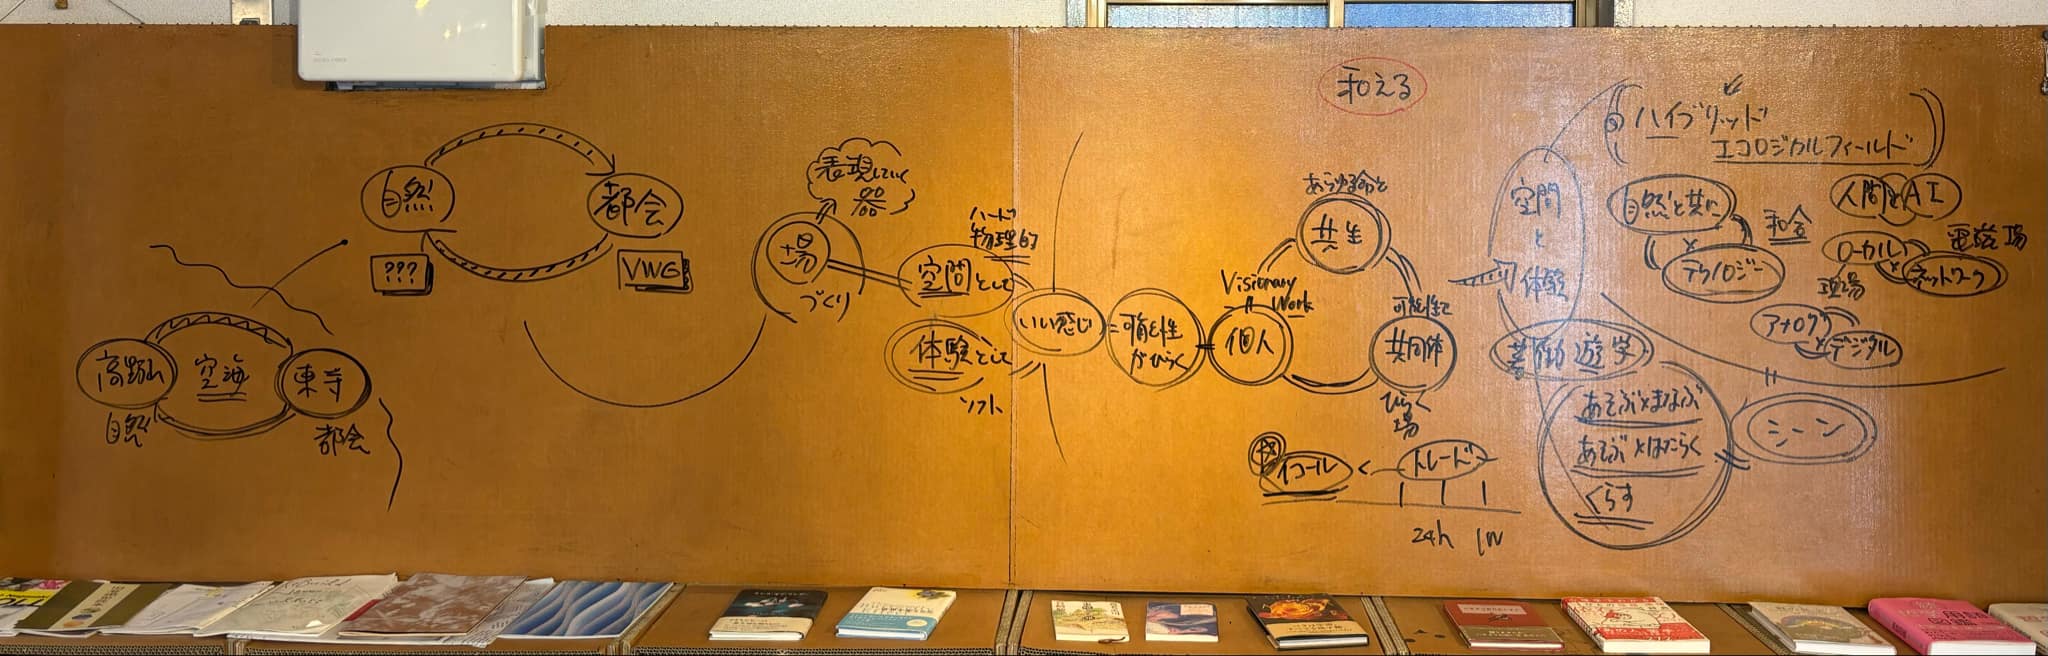 自然
都会
???
VWG
高野山
空海
東寺
自然
都会
表現していく
器
場
づくり
ハード
物理的
空間として
体験として
ソフト
いい感じ
=可能性
がひらく
Visionary
Work
個人
あらゆる命と
共生
可能性で
共同体
ひらく
場
イコール
トレード
24h
1W
和える
空間
と
体験
ハイブリッド
エコロジカルフィールド
自然と共に
×
テクノロジー
和合
人間とAI
ローカル
×
ネットワーク
電磁場
現場
アナログ
×
デジタル
働遊学
あそぶ×まなぶ
あそぶ×はたらく
くらす
シーン